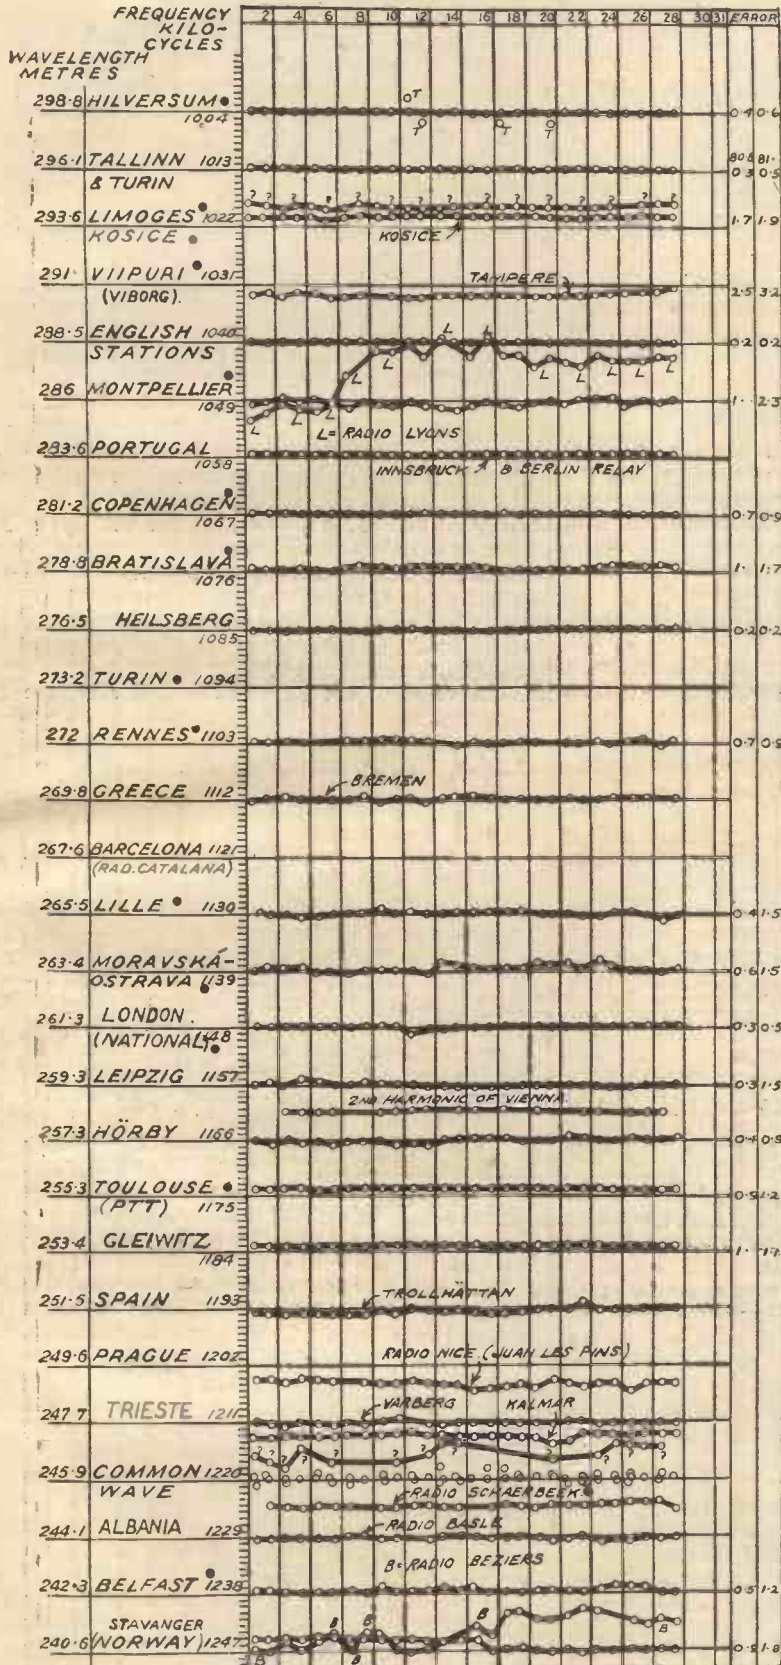 FREQUENCY
KILO-
CYCLES
2 4 6 8 10 12 14 16 18 20 22 24 26 28 30 31 ERROR
WAVELENGTH
METRES
298·8 HILVERSUM 1004 0·4 0·6
T
T T T
296·1 TALLINN 1013
& TURIN 0·3 0·5
? ? ? ? ? ? ? ? ? ? ? ? ? ?
293·6 LIMOGES 1022 1·7 1·9
KOSICE KOSICE
291· VIIPURI 1031 TAMPERE 2·5 3·2
(VIBORG).
288·5 ENGLISH 1040 0·2 0·2
STATIONS
L L
L L L L L L L
286 MONTPELLIER 1049 1· 2·3
L L L
L = RADIO LYONS
283·6 PORTUGAL 1058
INNSBRUCK & BERLIN RELAY
281·2 COPENHAGEN 1067 0·7 0·9
278·8 BRATISLAVA 1076 1· 1·7
276·5 HEILSBERG 1085 0·2 0·2
273·2 TURIN 1094
272 RENNES 1103 0·7 0·9
BREMEN
269·8 GREECE 1112
267·6 BARCELONA 1121
(RAD. CATALANA)
265·5 LILLE 1130 0·4 1·5
263·4 MORAVSKÁ- 0·6 1·5
OSTRAVA 1139
261·3 LONDON. 0·3 0·5
(NATIONAL)
259·3 LEIPZIG 1157 0·3 1·5
2ND HARMONIC OF VIENNA.
257·3 HÖRBY 1166 0·4 0·9
255·3 TOULOUSE
(PTT) 1175
253·4 GLEIWITZ
1184
251·5 SPAIN 1193 TROLLHÄTTAN
249·6 PRAGUE 1202 RADIO NICE (JUAN LES PINS)
247·7 TRIESTE 1211 VARBERG KALMAR
? ? ? ? ? ? ? ? ? ? ?
245·9 COMMON 1220
WAVE RADIO SCHAERBEEK
244·1 ALBANIA 1229 RADIO BASLE
B = RADIO BEZIERS
242·3 BELFAST 1238 0·5 1·2
STAVANGER
240·6 (NORWAY) 1247
B B B B B B